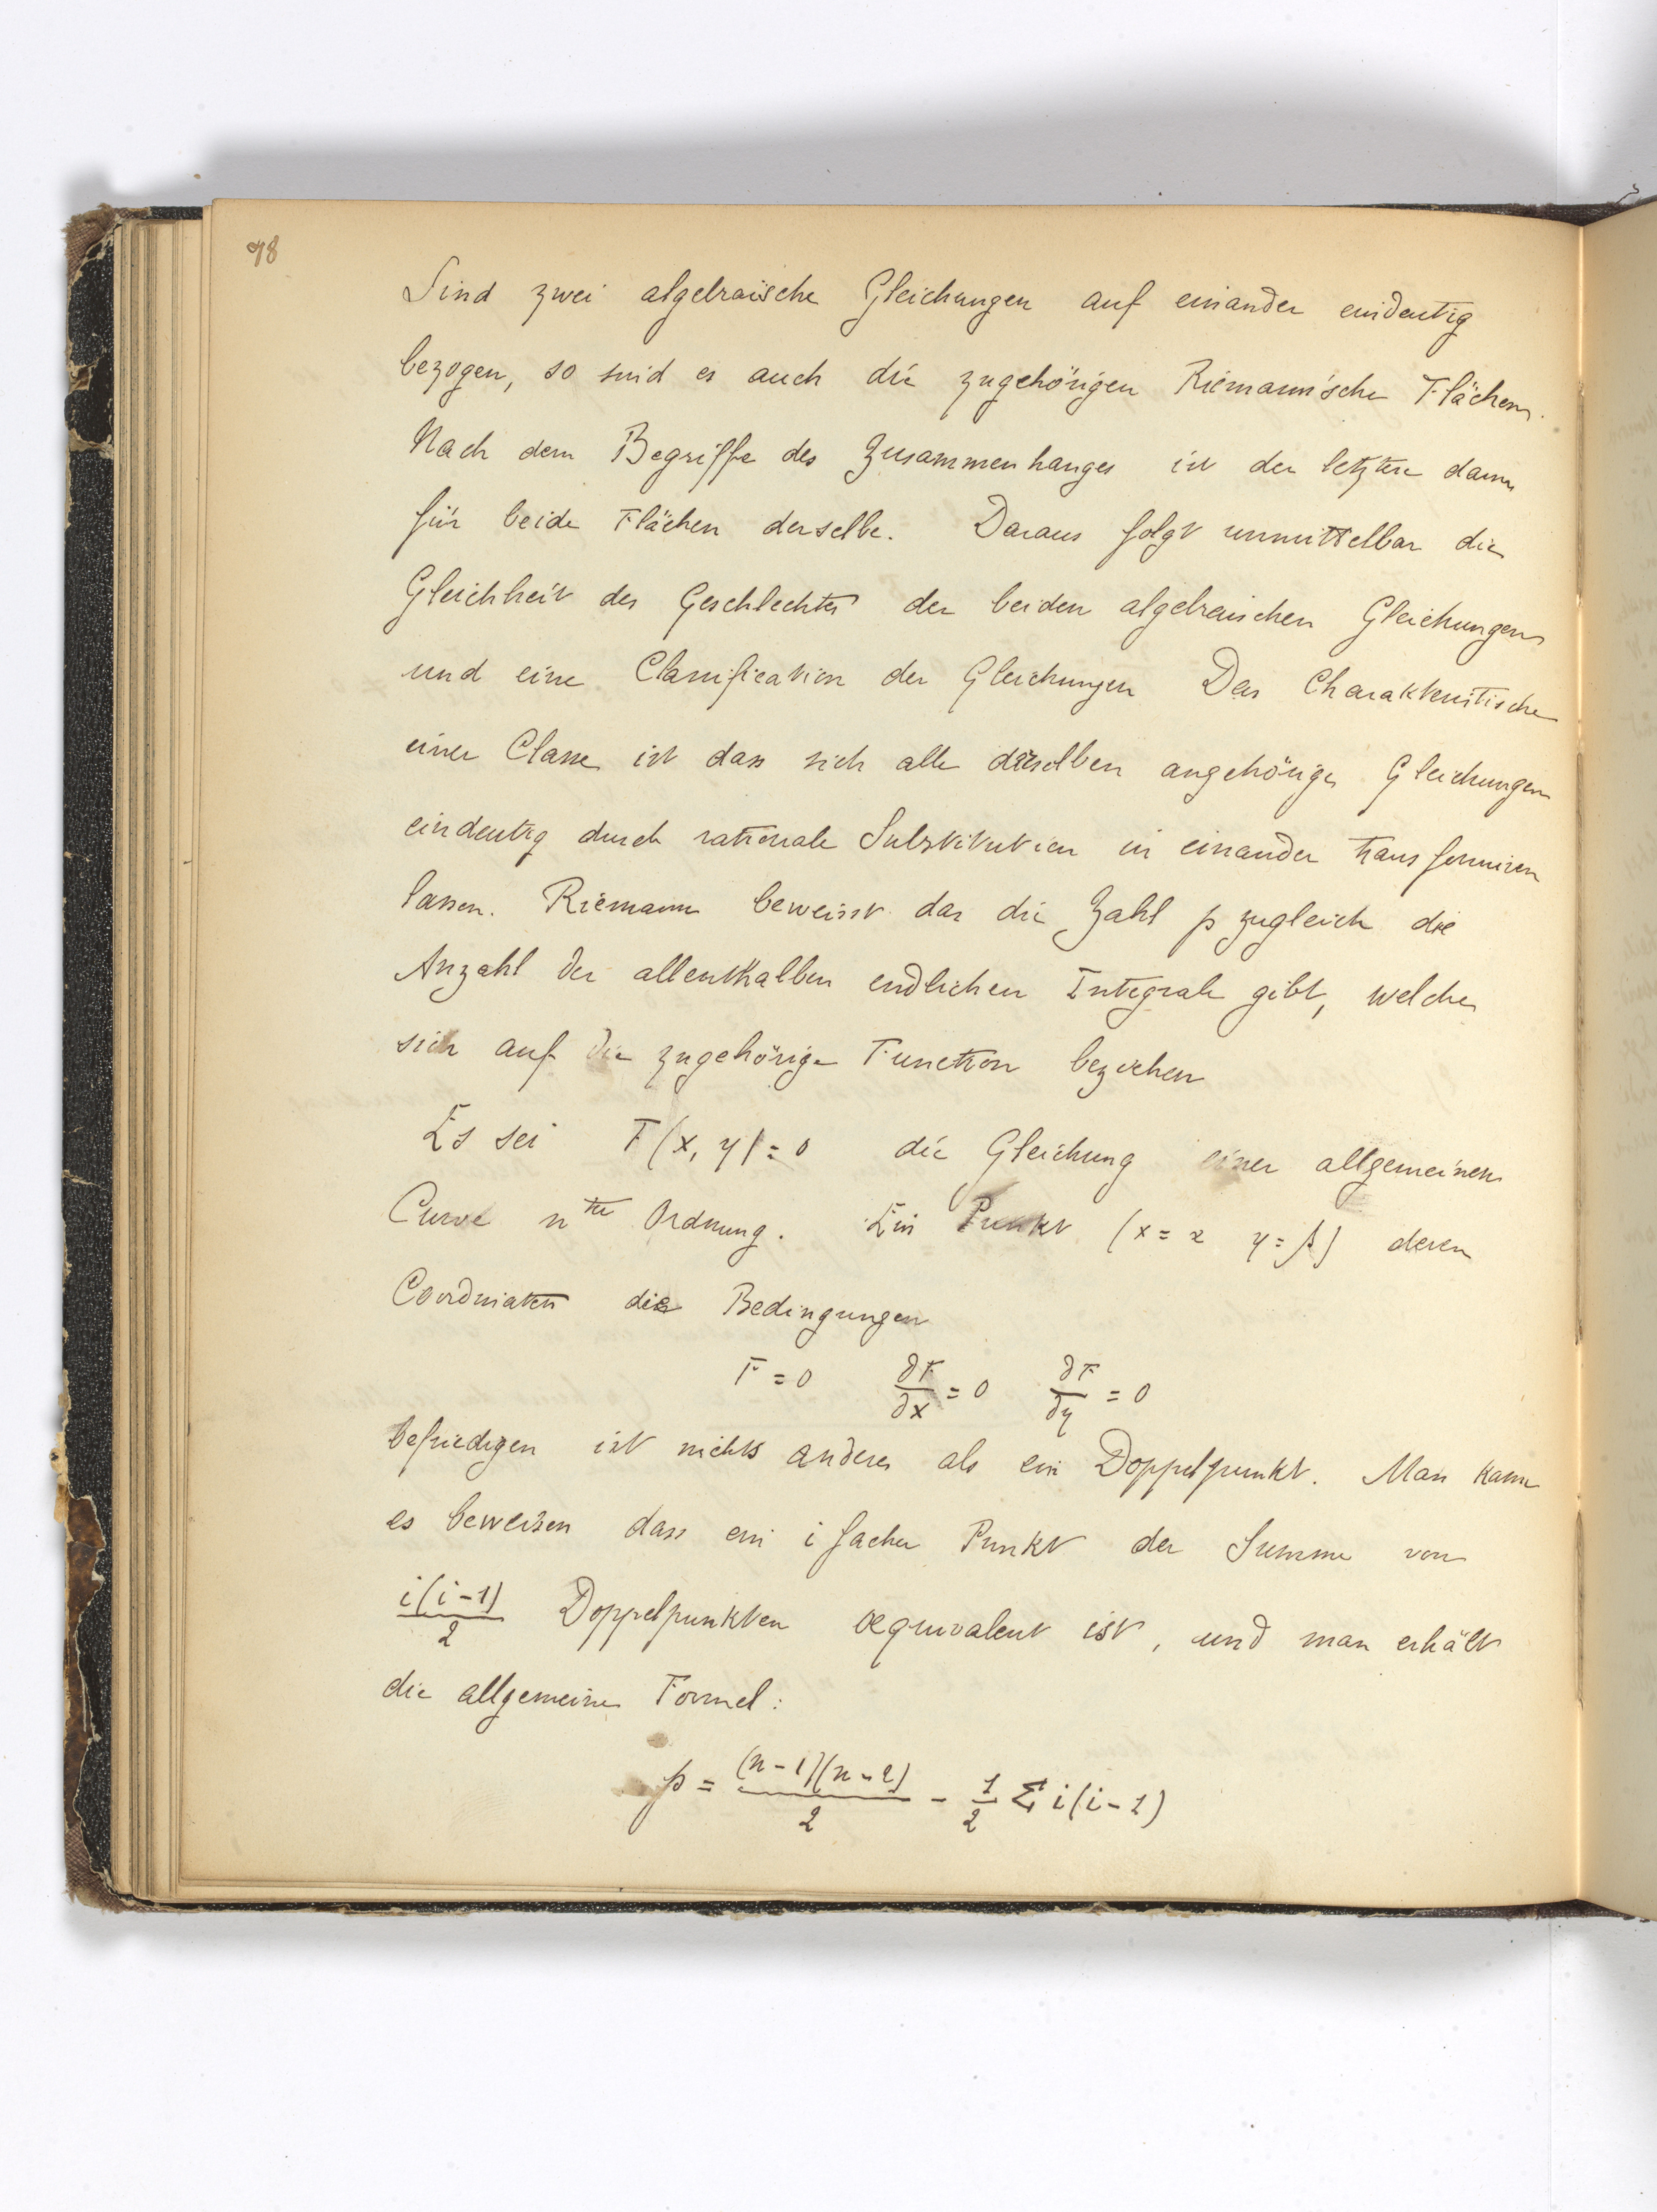 98
Sind zwei algebraische Gleichungen auf einander eindeutig
bezogen, so sind es auch die zugehörigen Riemann'sche Flächen.
Nach dem Begriffe des Zusammenhanges ist der letztere dann
für beide Flächen derselbe. Daraus folgt unmittelbar die
Gleichheit des Geschlechtes der beiden algebraischen Gleichungen
und eine Classification der Gleichungen Das Charakteristische
einer Classe ist dass sich alle derselben angehörige Gleichungen
eindeutig durch rationale Substitution in einander transformiren
lassen. Riemann beweisst das die Zahl p zugleich die
Anzahl der allenthalben endlichen Integrale gibt, welche
sich auf die zugehörige Function beziehen
Es sei F(x, y) = 0 die Gleichung einer allgemeinen
Curve n^ter Ordnung. Ein Punkt (x = α y = β) deren
Coordinaten die Bedingungen
F = 0 ∂F/∂x = 0 ∂F/∂y = 0
befriedigen ist nichts anderes als ein Doppelpunkt. Man kann
es beweisen dass ein i facher Punkt der Summe von
i(i-1)/2 Doppelpunkten aequivalent ist, und man erhält
die allgemeine Formel:
p = (n-1)(n-2)/2 - 1/2 Σ i(i-1)